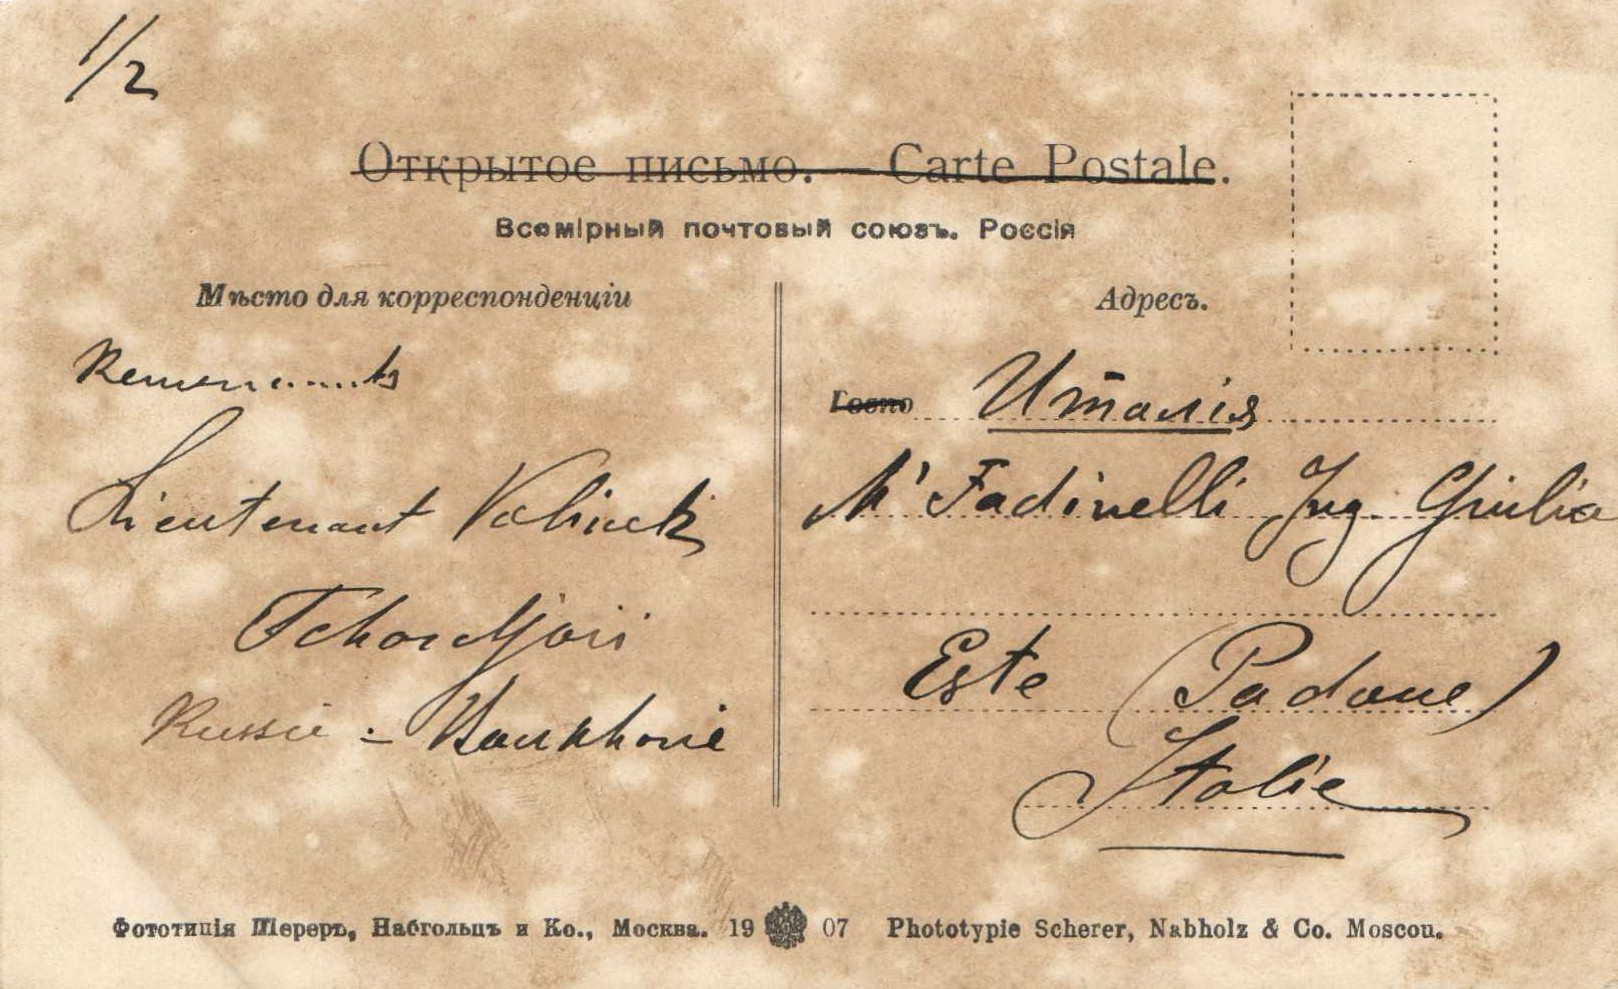 1/2
Открытое письмо. — Carte Postale.
Всемірный почтовый союзъ. Россія
Мѣсто для корреспонденціи
Адресъ.
Lieutenant
Russie -
Италія
Mr Fadinelli Ing. Giulio
Este (Padoue)
Italie
Фототипія Шереръ, Набгольцъ и Ко., Москва. 19 07 Phototypie Scherer, Nabholz & Co. Moscou.